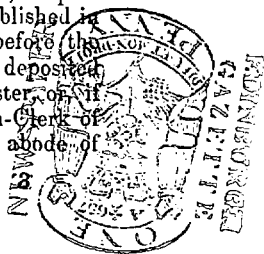 blished in
before the
deposited
ster, or, if
n-Clerk of
abode of
PENNY
EDINBURGH
GAZETTE
ONE